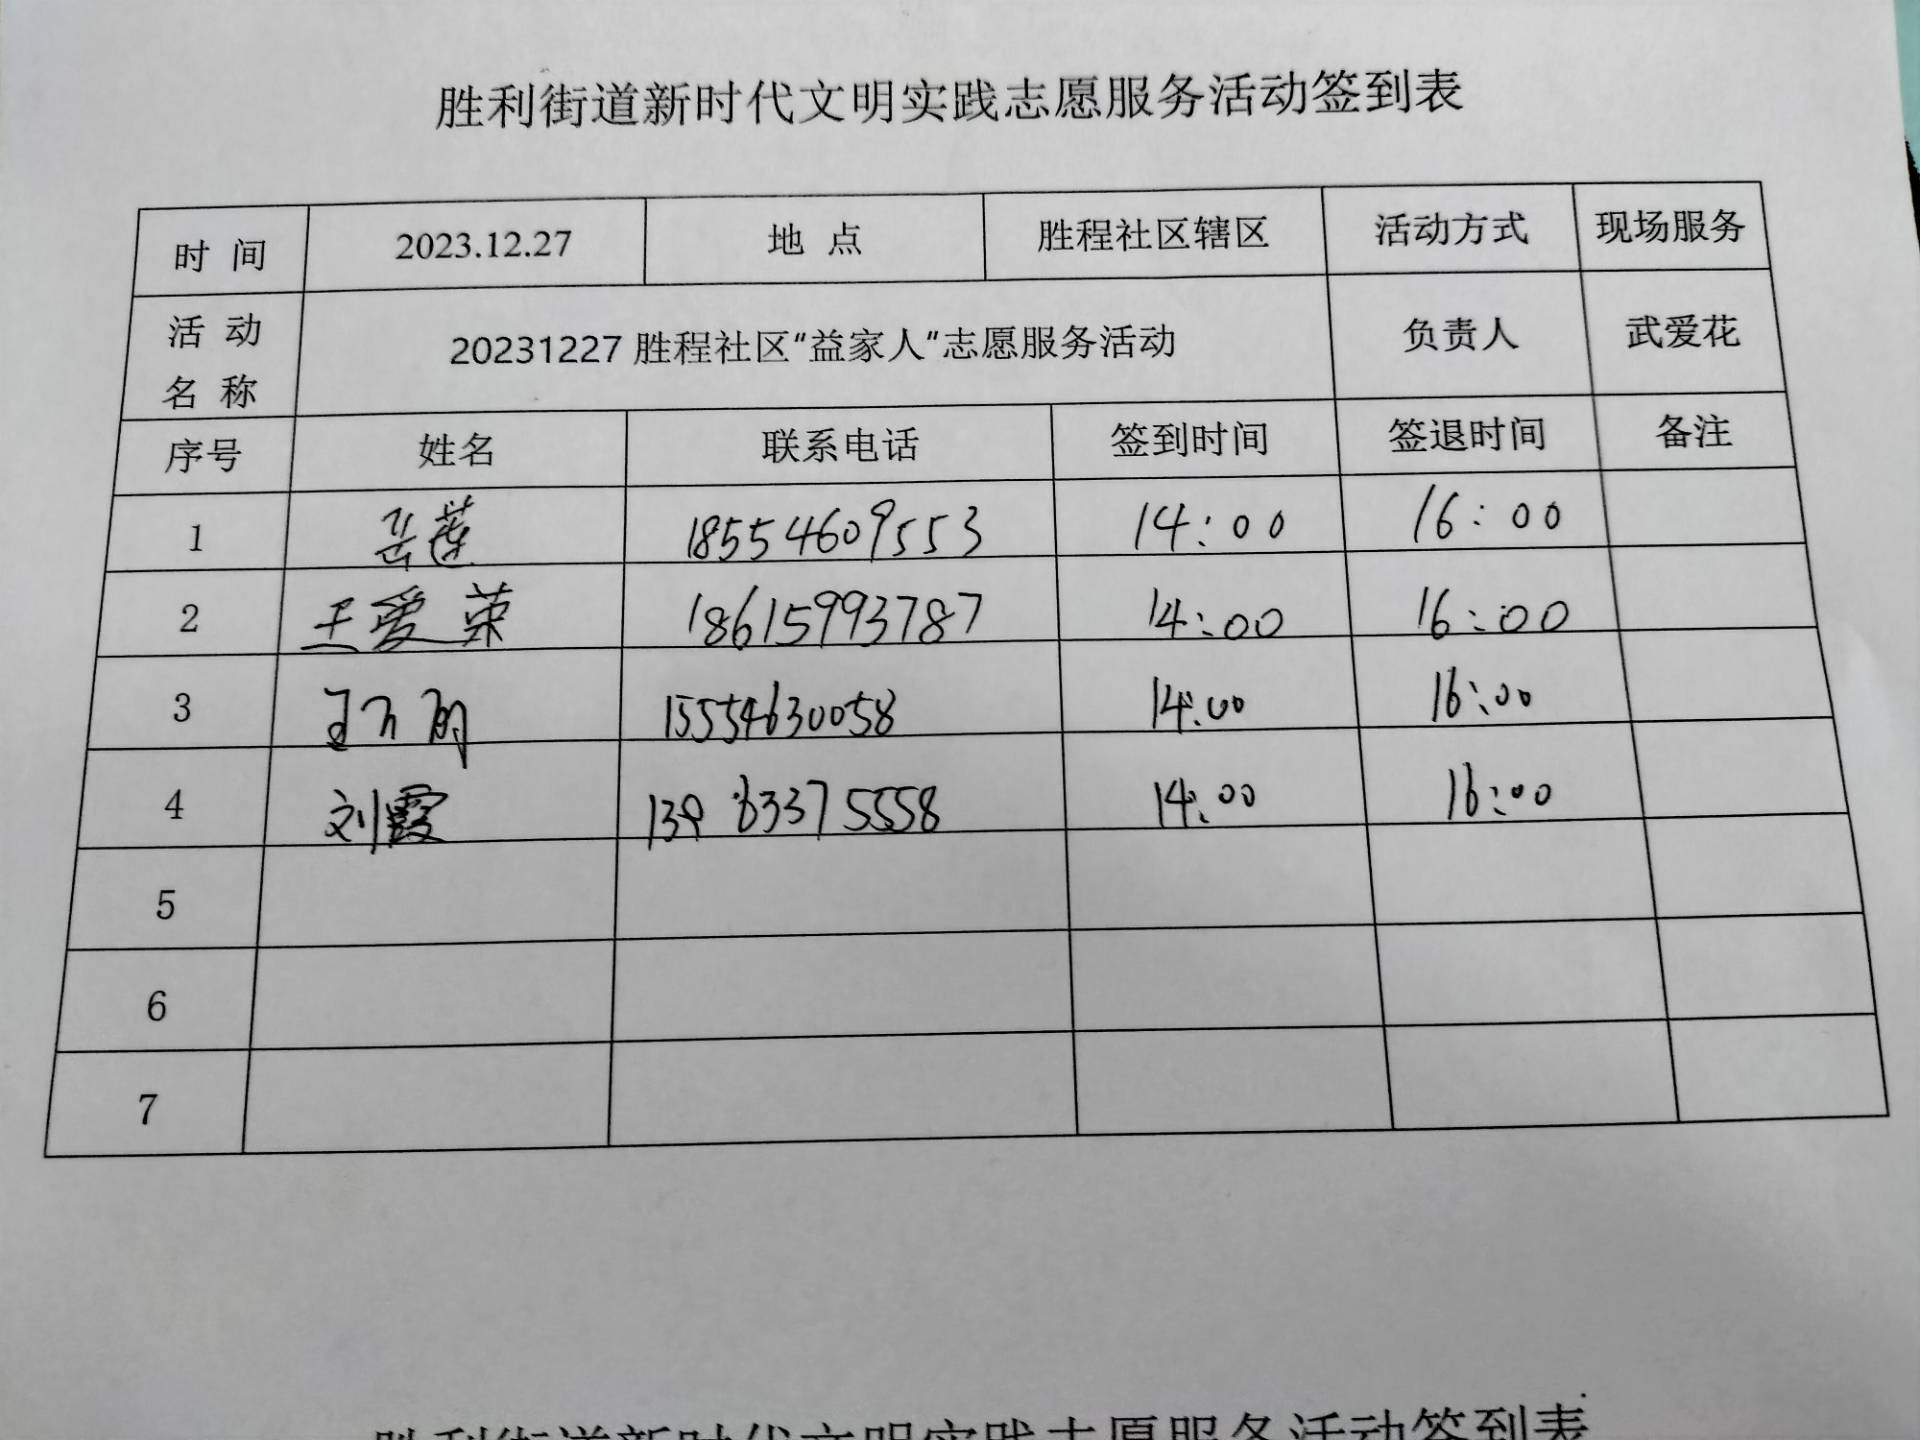 胜利街道新时代文明实践志愿服务活动签到表
时 间 2023.12.27 地 点 胜程社区辖区 活动方式 现场服务
活 动
名 称 20231227胜程社区“益家人”志愿服务活动 负责人 武爱花
序号 姓名 联系电话 签到时间 签退时间 备注
1 岳莲 18554609553 14:00 16:00
2 王爱荣 18615993787 14:00 16:00
3 15554630058 14:00 16:00
4 刘霞 14:00 16:00
5
6
7
胜利街道新时代文明实践志愿服务活动签到表